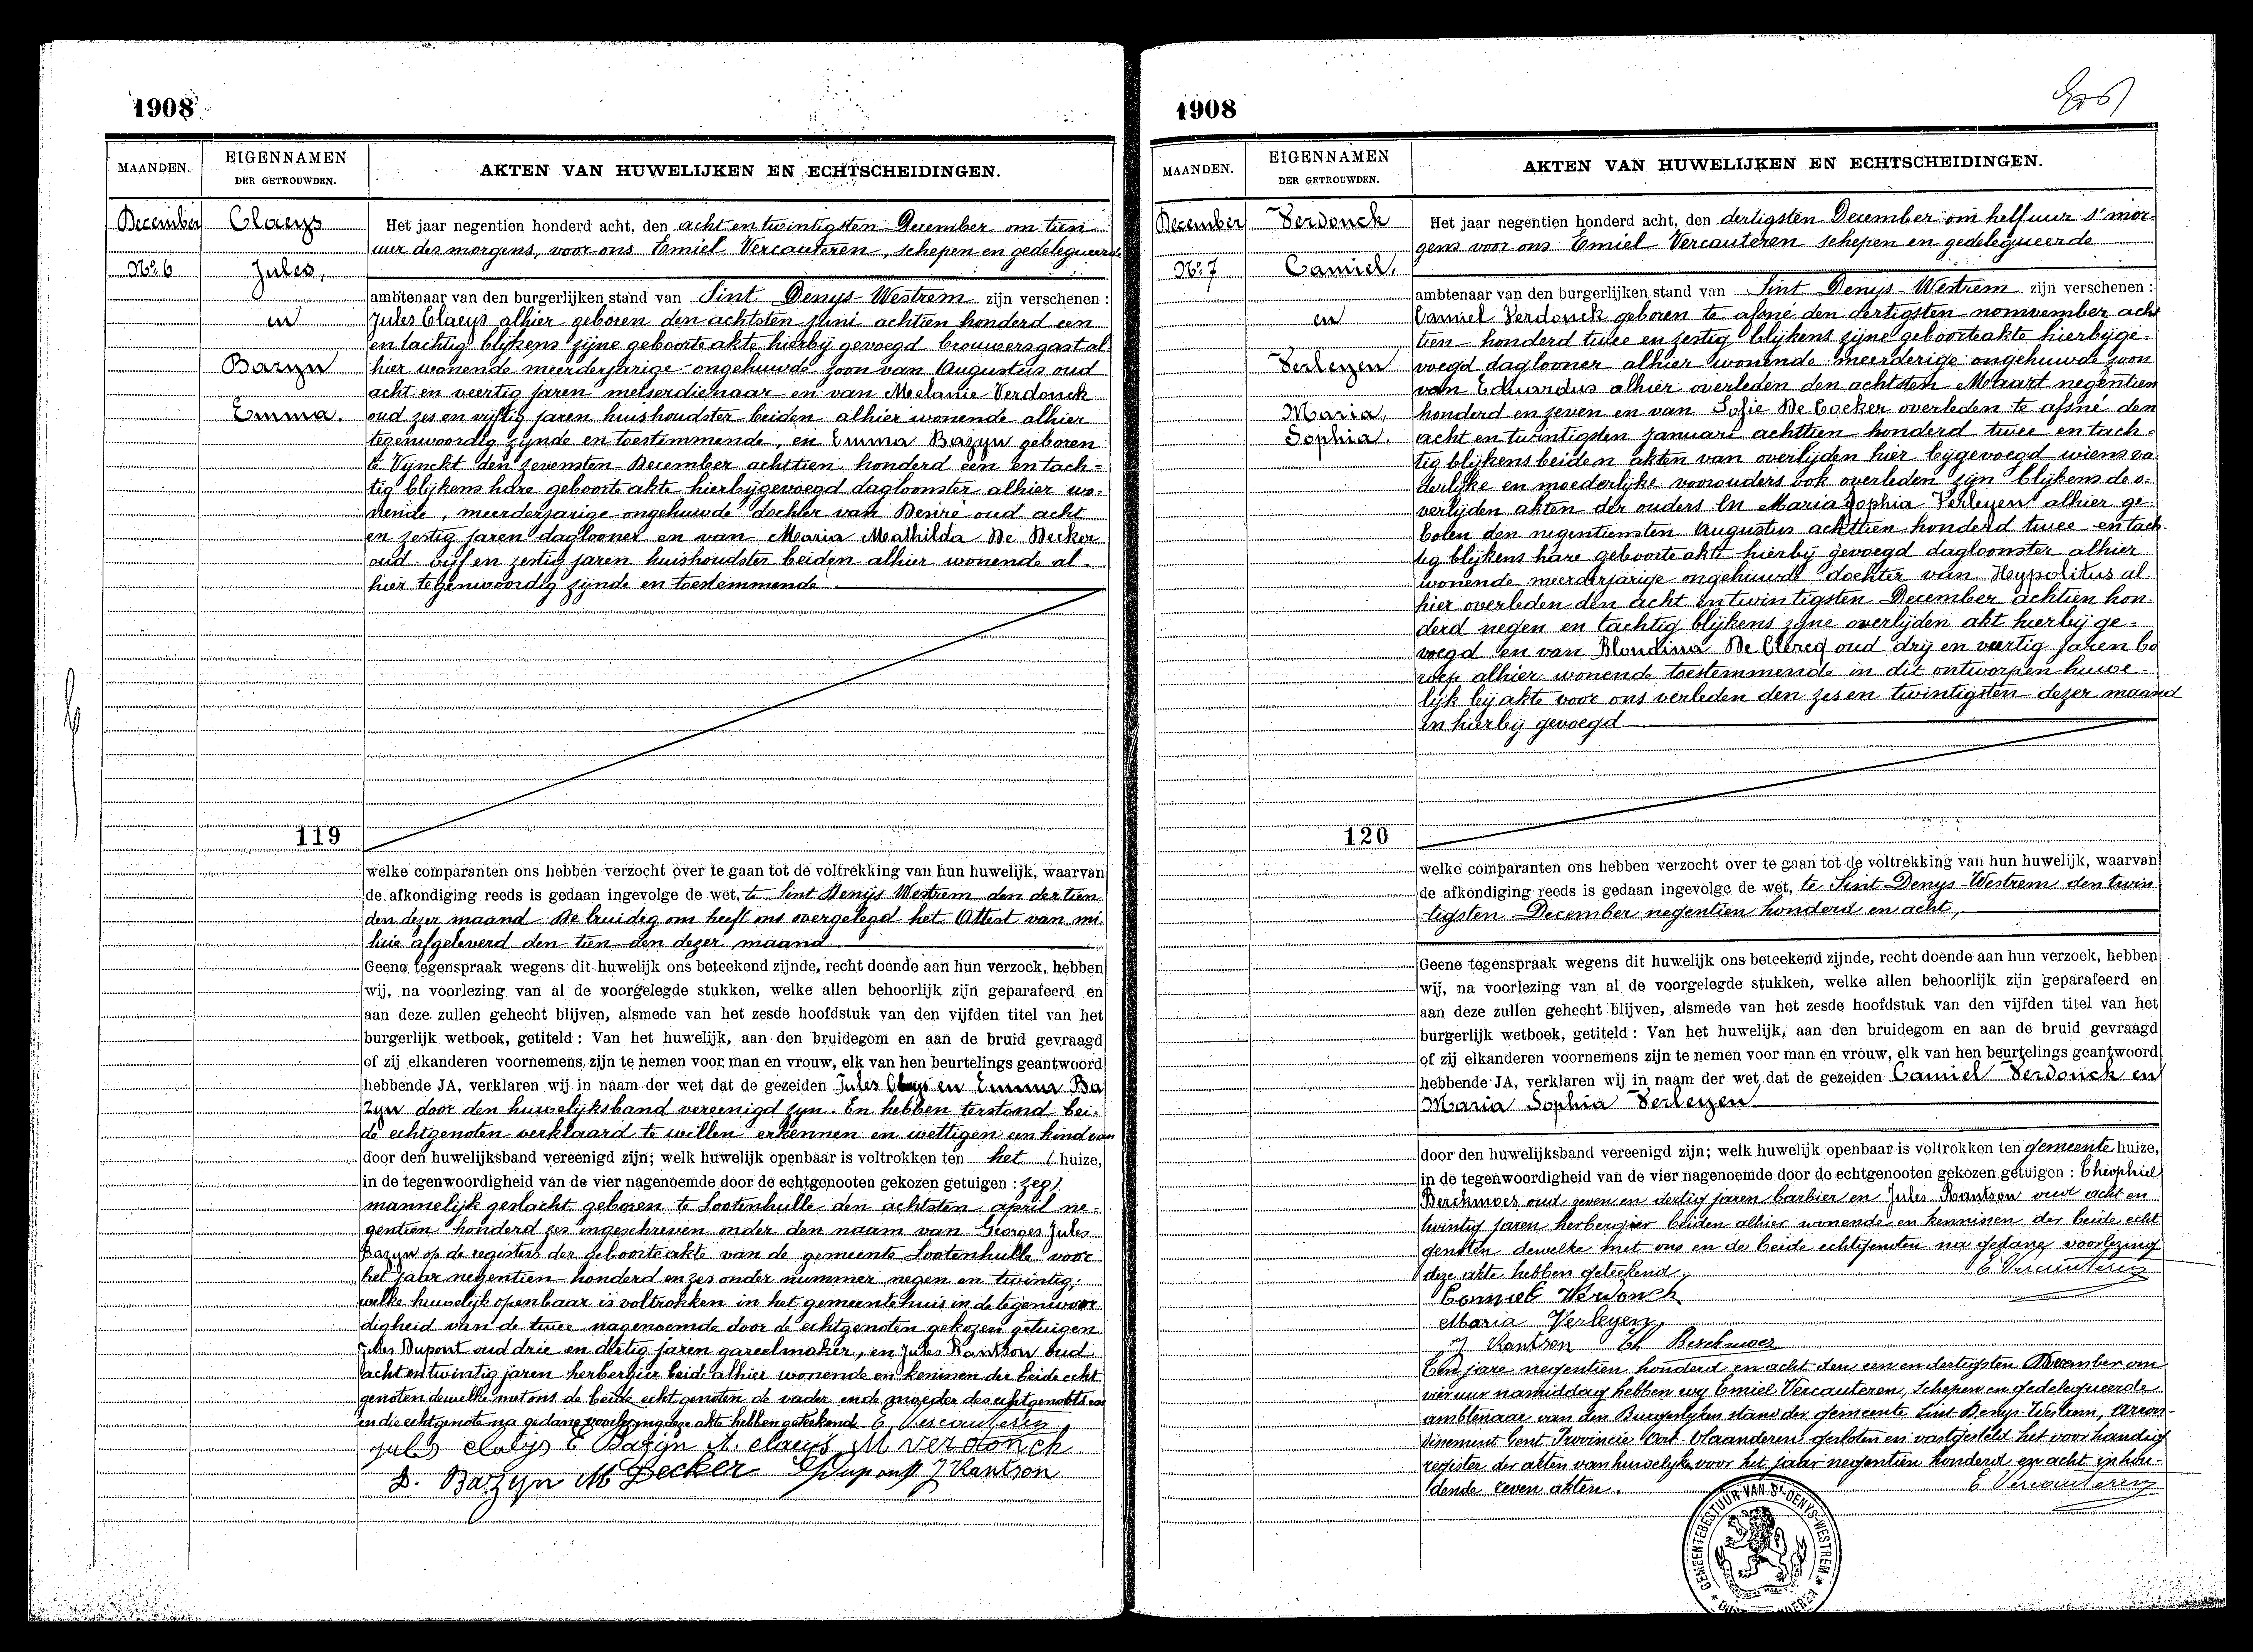 1908
MAANDEN.
EIGENNAMEN
DER GETROUWDEN.
AKTEN VAN HUWELIJKEN EN ECHTSCHEIDINGEN.
December
Claeys
Nº 6
Jules,
en
Bazyn
Emma.
Het jaar negentien honderd acht, den acht en twintigsten December om tien
uur des morgens, voor ons Emiel Vercauteren, schepen en gedelegueerde
ambtenaar van den burgerlijken stand van Sint Denys-Westrem zijn verschenen :
Jules Claeys alhier geboren den achtsten juni achtien honderd een
en tachtig blijkens zijne geboorte akte hierbij gevoegd brouwersgast al
hier wonende meerderjarige ongehuwde zoon van Augustus oud
acht en veertig jaren metserdienaar en van Melanie Verdonck
oud zes en vijftig jaren huishoudster beiden alhier wonende alhier
tegenwoordig zijnde en toestemmende, en Emma Bazyn geboren
te Vijnckt den zevensten December achttien honderd een en tach=
tig blijkens hare geboorte akte hierbijgevoegd dagloonster alhier wo-
nende, meerderjarige ongehuwde dochter van Desiré oud acht
en zestig jaren daglooner en van Maria Mathilda De Decker
oud vijf en zestig jaren huishoudster beiden alhier wonende al-
hier tegenwoordig zijnde en toestemmende
119
welke comparanten ons hebben verzocht over te gaan tot de voltrekking van hun huwelijk, waarvan
de afkondiging reeds is gedaan ingevolge de wet, te Sint Denijs Westrem den dertien
den dezer maand De bruidegom heeft ons overgelegd het Attest van mi-
licie afgeleverd den tien den dezer maand
Geene tegenspraak wegens dit huwelijk ons beteekend zijnde, recht doende aan hun verzoek, hebben
wij, na voorlezing van al de voorgelegde stukken, welke allen behoorlijk zijn geparafeerd en
aan deze zullen gehecht blijven, alsmede van het zesde hoofdstuk van den vijfden titel van het
burgerlijk wetboek, getiteld : Van het huwelijk, aan den bruidegom en aan de bruid gevraagd
of zij elkanderen voornemens zijn te nemen voor man en vrouw, elk van hen beurtelings geantwoord
hebbende JA, verklaren wij in naam der wet dat de gezeiden Jules Claeys en Emma Ba
zyn door den huwelijksband vereenigd zyn. En hebben terstond bei-
de echtgenoten verklaard te willen erkennen en wettigen een kind van
door den huwelijksband vereenigd zijn; welk huwelijk openbaar is voltrokken ten het (huize,
in de tegenwoordigheid van de vier nagenoemde door de echtgenooten gekozen getuigen : zeg)
mannelijk geslacht geboren te Lootenhulle den achtsten april ne-
gentien honderd zes ingeschreven onder den naam van Georges Jules
Bazyn op de registers der geboorteakte van de gemeente Lootenhulle voor
het jaar negentien honderd en zes onder nummer negen en twintig;
welke huwelijk openbaar is voltrokken in het gemeentehuis in de tegenwoor
digheid van de twee nagenoemde door de echtgenoten gekozen getuigen
Jules Dupont oud drie en dertig jaren gareelmaker, en Jules Rantson oud
acht en twintig jaren herbergier beide alhier wonende en kennissen der beide echt
genoten dewelke met ons de beide echtgenoten de vader en de moeder des echtgenoots en
en die echtgenote na gedane voorlezing deze akte hebben geteekend E Vercauteren
jules claeÿs E Bazijn A. claeys M verdonck
D. Bazyn M Decker J Rantson
1908
MAANDEN.
EIGENNAMEN
DER GETROUWDEN.
AKTEN VAN HUWELIJKEN EN ECHTSCHEIDINGEN.
December
Verdonck
Nº 7
Camiel,
en
Verleyen
Maria,
Sophia.
Het jaar negentien honderd acht, den dertigsten December om half uur s' mor-
gens voor ons Emiel Vercauteren schepen en gedelegueerde
ambtenaar van den burgerlijken stand van Sint Denys-Westrem zijn verschenen :
Camiel Verdonck geboren te afsné den dertigsten nomvember ach
tien honderd twee en zestig blijkens zijne geboorteakte hierbijge-
voegd daglooner alhier wonende meerderige ongehuwde zoon
van Eduardus alhier overleden den achtsten Maart negentien
honderd en zeven en van Sofie De Cocker overleden te afsné den
acht en twintigsten januari achttien honderd twee en tach-
tig blijkens beiden akten van overlijden hier bijgevoegd wiens va
derlijke en moederlijke voorouders ook overleden zijn blijkens de o-
verlijden akten der ouders En Maria Sophia Verleyen alhier ge-
boren den negentiensten Augustus achttien honderd twee en tach-
tig blijkens hare geboorte akte hierbij gevoegd dagloonster alhier
wonende meerderjarige ongehuwde dochter van Heypolitus al
hier overleden den acht en twintigsten December achtien hon-
derd negen en tachtig blijkens zijne overlijden akt hierbij ge-
voegd en van Blondina De Clercq oud drij en veertig jaren be
roep alhier wonende toestemmende in dit ontworpen huwe-
lijk bij akte voor ons verleden den zes en twintigsten dezer maand
en hierbij gevoegd
120
welke comparanten ons hebben verzocht over te gaan tot de voltrekking van hun huwelijk, waarvan
de afkondiging reeds is gedaan ingevolge de wet, te Sint-Denys-Westrem den twin
tigsten December negentien honderd en acht,
Geene tegenspraak wegens dit huwelijk ons beteekend zijnde, recht doende aan hun verzoek, hebben
wij, na voorlezing van al de voorgelegde stukken, welke allen behoorlijk zijn geparafeerd en
aan deze zullen gehecht blijven, alsmede van het zesde hoofdstuk van den vijfden titel van het
burgerlijk wetboek, getiteld : Van het huwelijk, aan den bruidegom en aan de bruid gevraagd
of zij elkanderen voornemens zijn te nemen voor man en vrouw, elk van hen beurtelings geantwoord
hebbende JA, verklaren wij in naam der wet dat de gezeiden Camiel Verdonck en
Maria Sophia Verleyen
door den huwelijksband vereenigd zijn; welk huwelijk openbaar is voltrokken ten gemeente huize,
in de tegenwoordigheid van de vier nagenoemde door de echtgenooten gekozen getuigen : Théophiel
Berckmoes oud zeven en dertig jaren barbier en Jules Rantson oud acht en
twintig jaren herbergier beiden alhier wonende en kennissen der beide echt
genoten dewelke met ons en de beide echtgenoten na gedane voorlezing
deze akte hebben geteekend E Vercauteren
Camiel Verdonck
Maria Verleyen,
J Rantson Th Berckmoes
Ten jare negentien honderd en acht den een en dertigsten December om
vier uur namiddag hebben wy Emiel Vercauteren, Schepen en gedelegueerde
ambtenaar van den Burgerlyken stand der gemeente Sint Denys-Westrem, arron-
dissement Gent Provincie Oost Vlaanderen gesloten en vastgesteld het voorhandig
register der akten van huwelyke voor het jaar negentien honderd en acht inhou-
dende zeven akten. E Vercauteren
GEMEENTEBESTUUR VAN Sᵗ DENYS-WESTREM